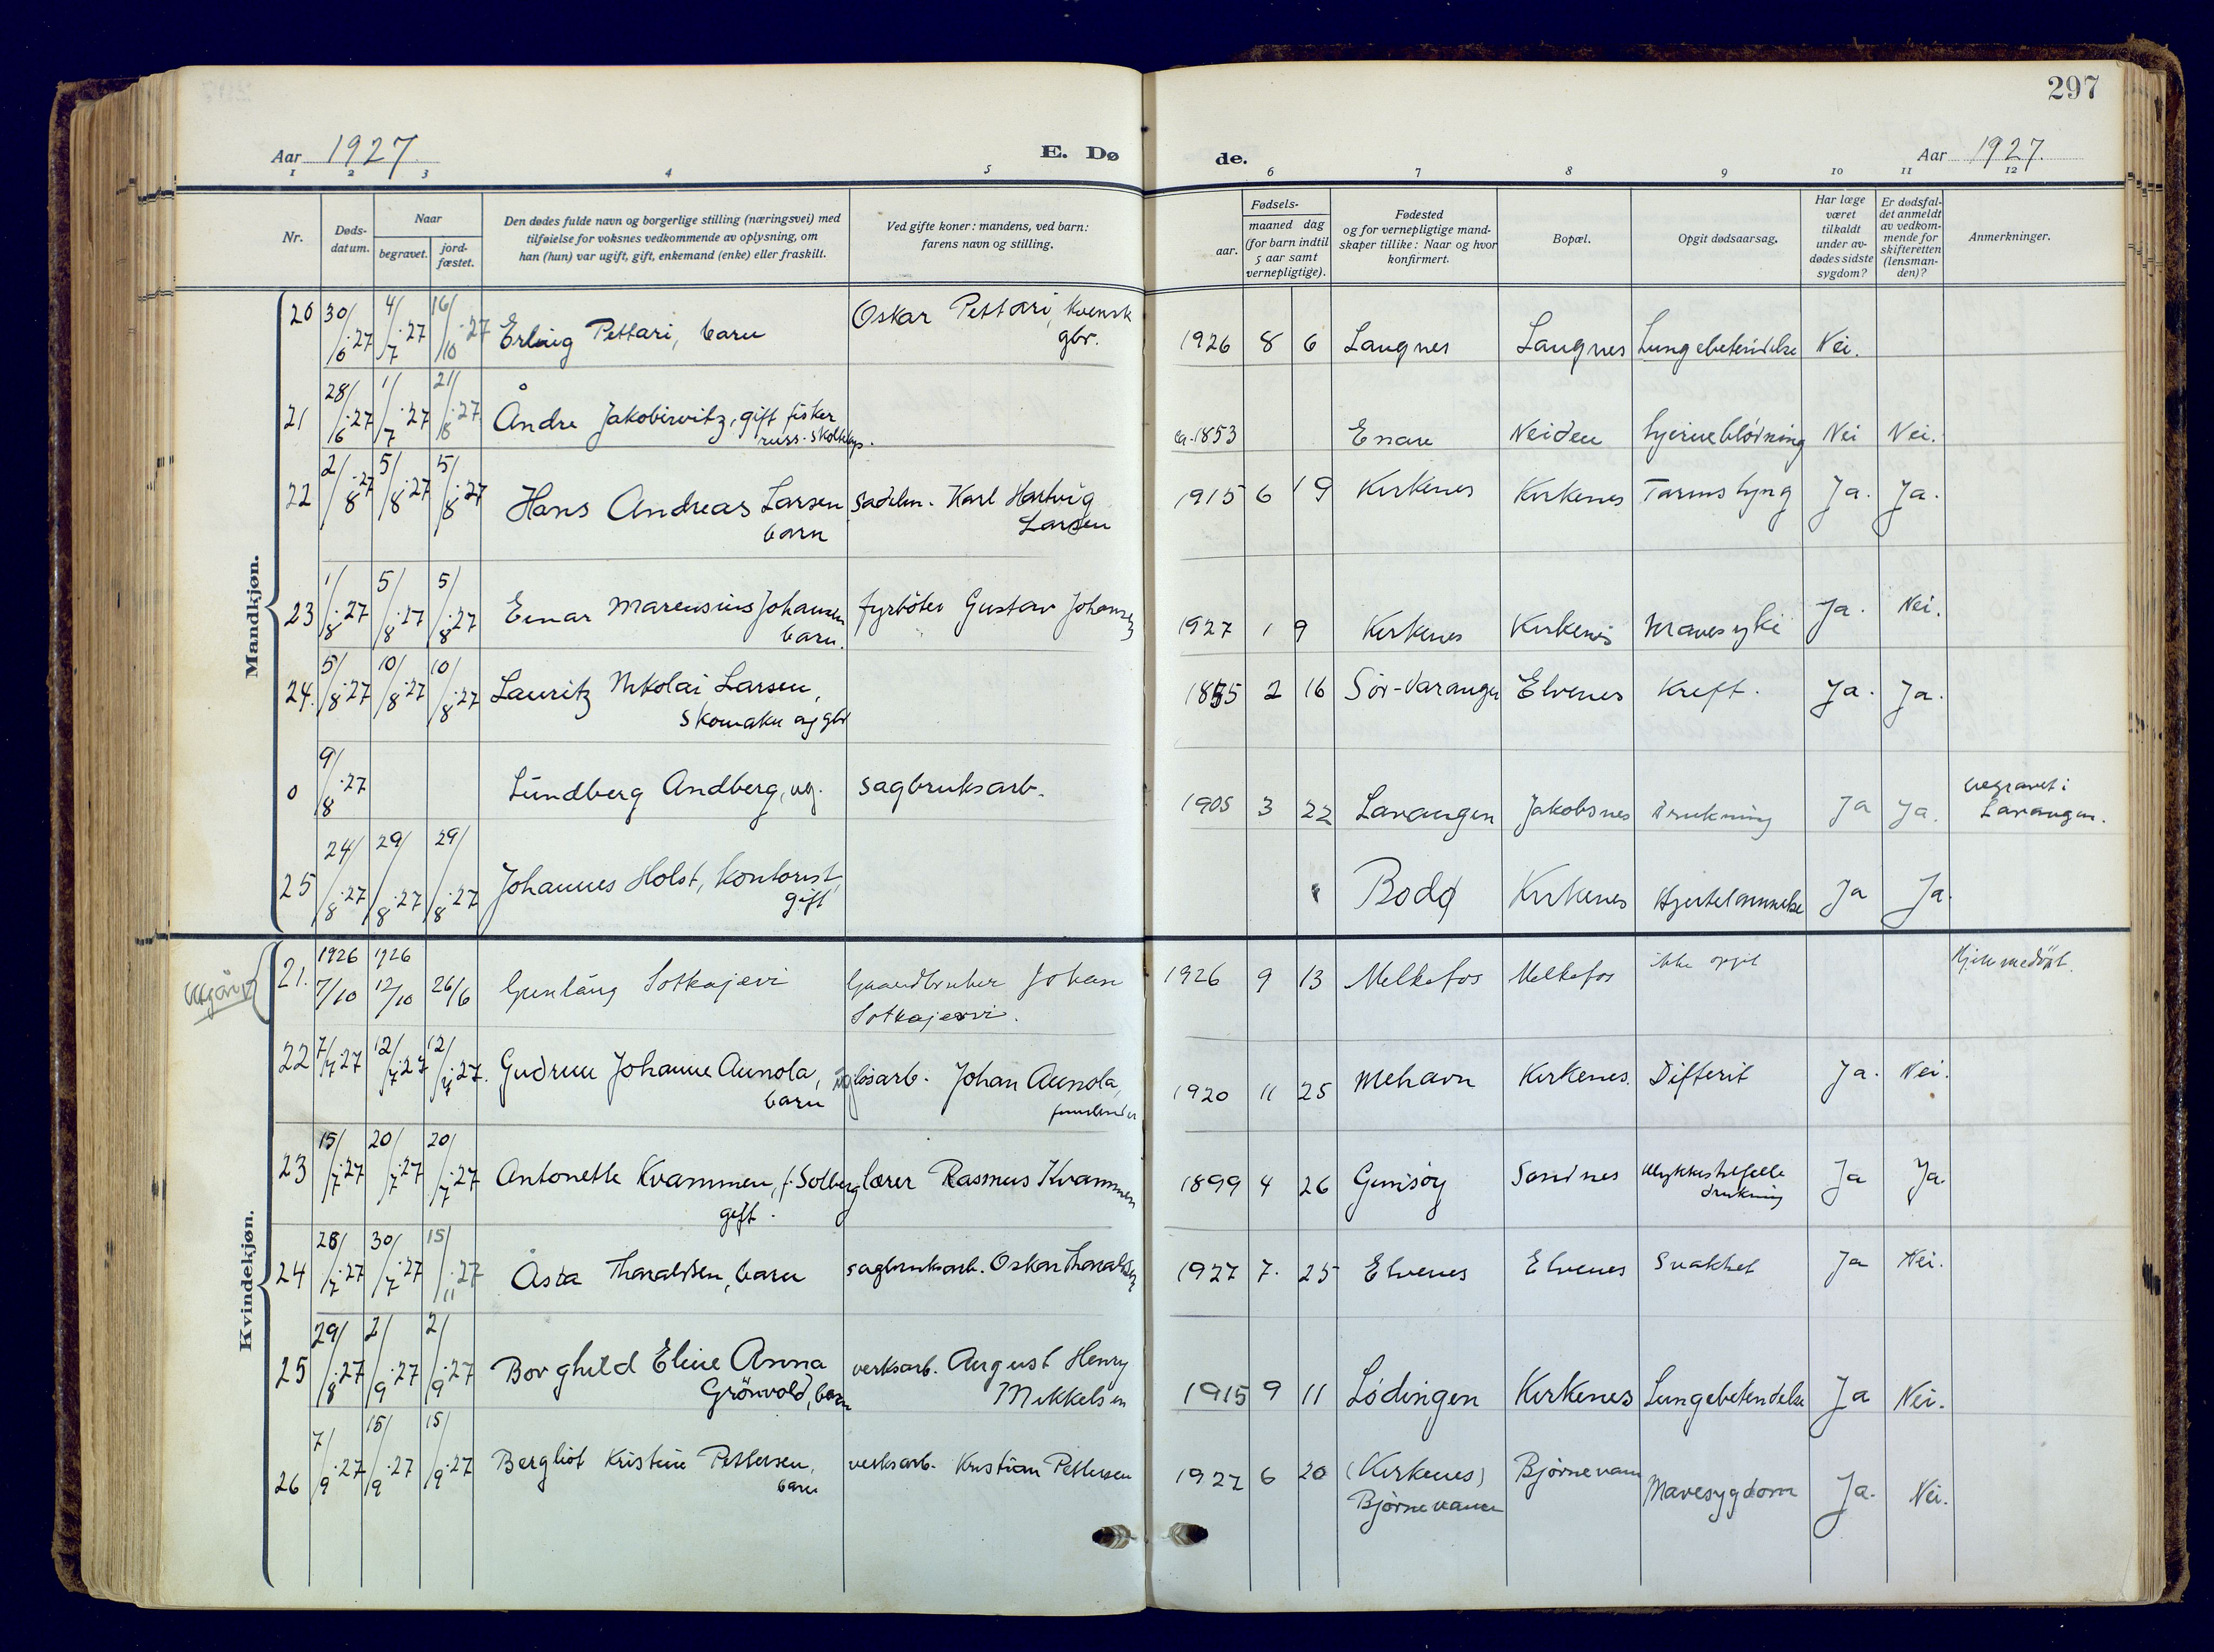 297
Aar 1927. E. Dø de. Aar 1927.
1 2 3 4 5 6 7 8 9 10 11 12
Nr.
Døds-
datum.
Naar
begravet.
jord-
fæstet.
Den dødes fulde navn og borgerlige stilling (næringsvei) med
tilføielse for voksnes vedkommende av oplysning, om
han (hun) var ugift, gift, enkemand (enke) eller fraskilt.
Ved gifte koner: mandens, ved barn:
farens navn og stilling.
Fødsels-
aar.
maaned dag
(for barn indtil
5 aar samt
vernepligtige).
Fødested
og for vernepligtige mand-
skaper tillike: Naar og hvor
konfirmert.
Bopæl.
Opgit dødsaarsag.
Har læge
været
tilkaldt
under av-
dødes sidste
sygdom?
Er dødsfal-
det anmeldt
av vedkom-
mende for
skifteretten
(lensman-
den)?
Anmerkninger.
Mandkjøn.
20 30/6.27 4/7.27 16/10.27 Erling Pettari, barn Oskar Pettari, kvensk
gbr. 1926 8 6 Langnes Langnes Lungebetendelse Nei.
21 28/6.27 1/7.27 21/8.27 Andre Jakobirvitz, gift fisker
russ. skoltelap. ca. 1853 Enare Neiden hjerneblødning Nei Nei.
22 2/8.27 5/8.27 5/8.27 Hans Andreas Larsen
barn sadelm. Karl Hartvig
Larsen 1915 6 19 Kirkenes Kirkenes Tarmslyng Ja. Ja.
23 1/8.27 5/8.27 5/8.27 Einar Marensius Johansen
barn. fyrbøter Gustav Johansen 1927 1 9 Kirkenes Kirkenes Mavesyke Ja. Nei.
24. 5/8.27 10/8.27 10/8.27 Lauritz Nikolai Larsen,
skomaker og gbr 1855 2 16 Sør-Varanger Elvenes Kreft. Ja. Ja.
0 9/8.27 Lundberg Andberg, ug. sagbruksarb. 1905 3 22 Lavangen Jakobsnes drukning Ja Ja. begravet i
Lavangen.
25 24/8.27 29/8.27 29/8.27 Johannes Holst, kontorist,
gift Bodø Kirkenes Hjertelammelse Ja Ja.
Kvindekjøn.
21. 1926 7/10 1926 12/10 26/6 Gunlaug Sotkajervi Gaardbruker Johan
Sotkajervi. 1926 9 13 Melkefos Melkefos ikke opgit Hjemmedøpt.
22 7/7.27 12/7.27 12/7.27. Gudrun Johanne Aunola,
barn løsarb. Johan Aunola, 1920 11 25 Mehavn Kirkenes. Difterit Ja. Nei.
23 15/7.27 20/7.27 20/7.27 Antonette Kvammen, f. Solberg
gift. lærer Rasmus Kvammen 1899 4 26 Gimsøy Sandnes Ulykkestilfelle
drukning Ja Ja.
24 28/7.27 30/7.27 15/11.27 Åsta Tharaldsen, barn sagbruksarb. Oskar Tharaldsen 1927 7. 25 Elvenes Elvenes Svakhet Ja Nei.
25 29/8.27 2/9.27 2/9.27 Borghild Eline Anna
Grönvold, barn verksarb. August Henry
Mikkelsen 1915 9 11 Lødingen Kirkenes Lungebetendelse Ja Nei.
26 7/9.27 15/9.27 15/9.27 Bergliot Kristine Pettersen,
barn verksarb. Kristian Pettersen 1927 6 20 (Kirkenes)
Bjørnevann Bjørnevann Mavesygdom Ja. Nei.